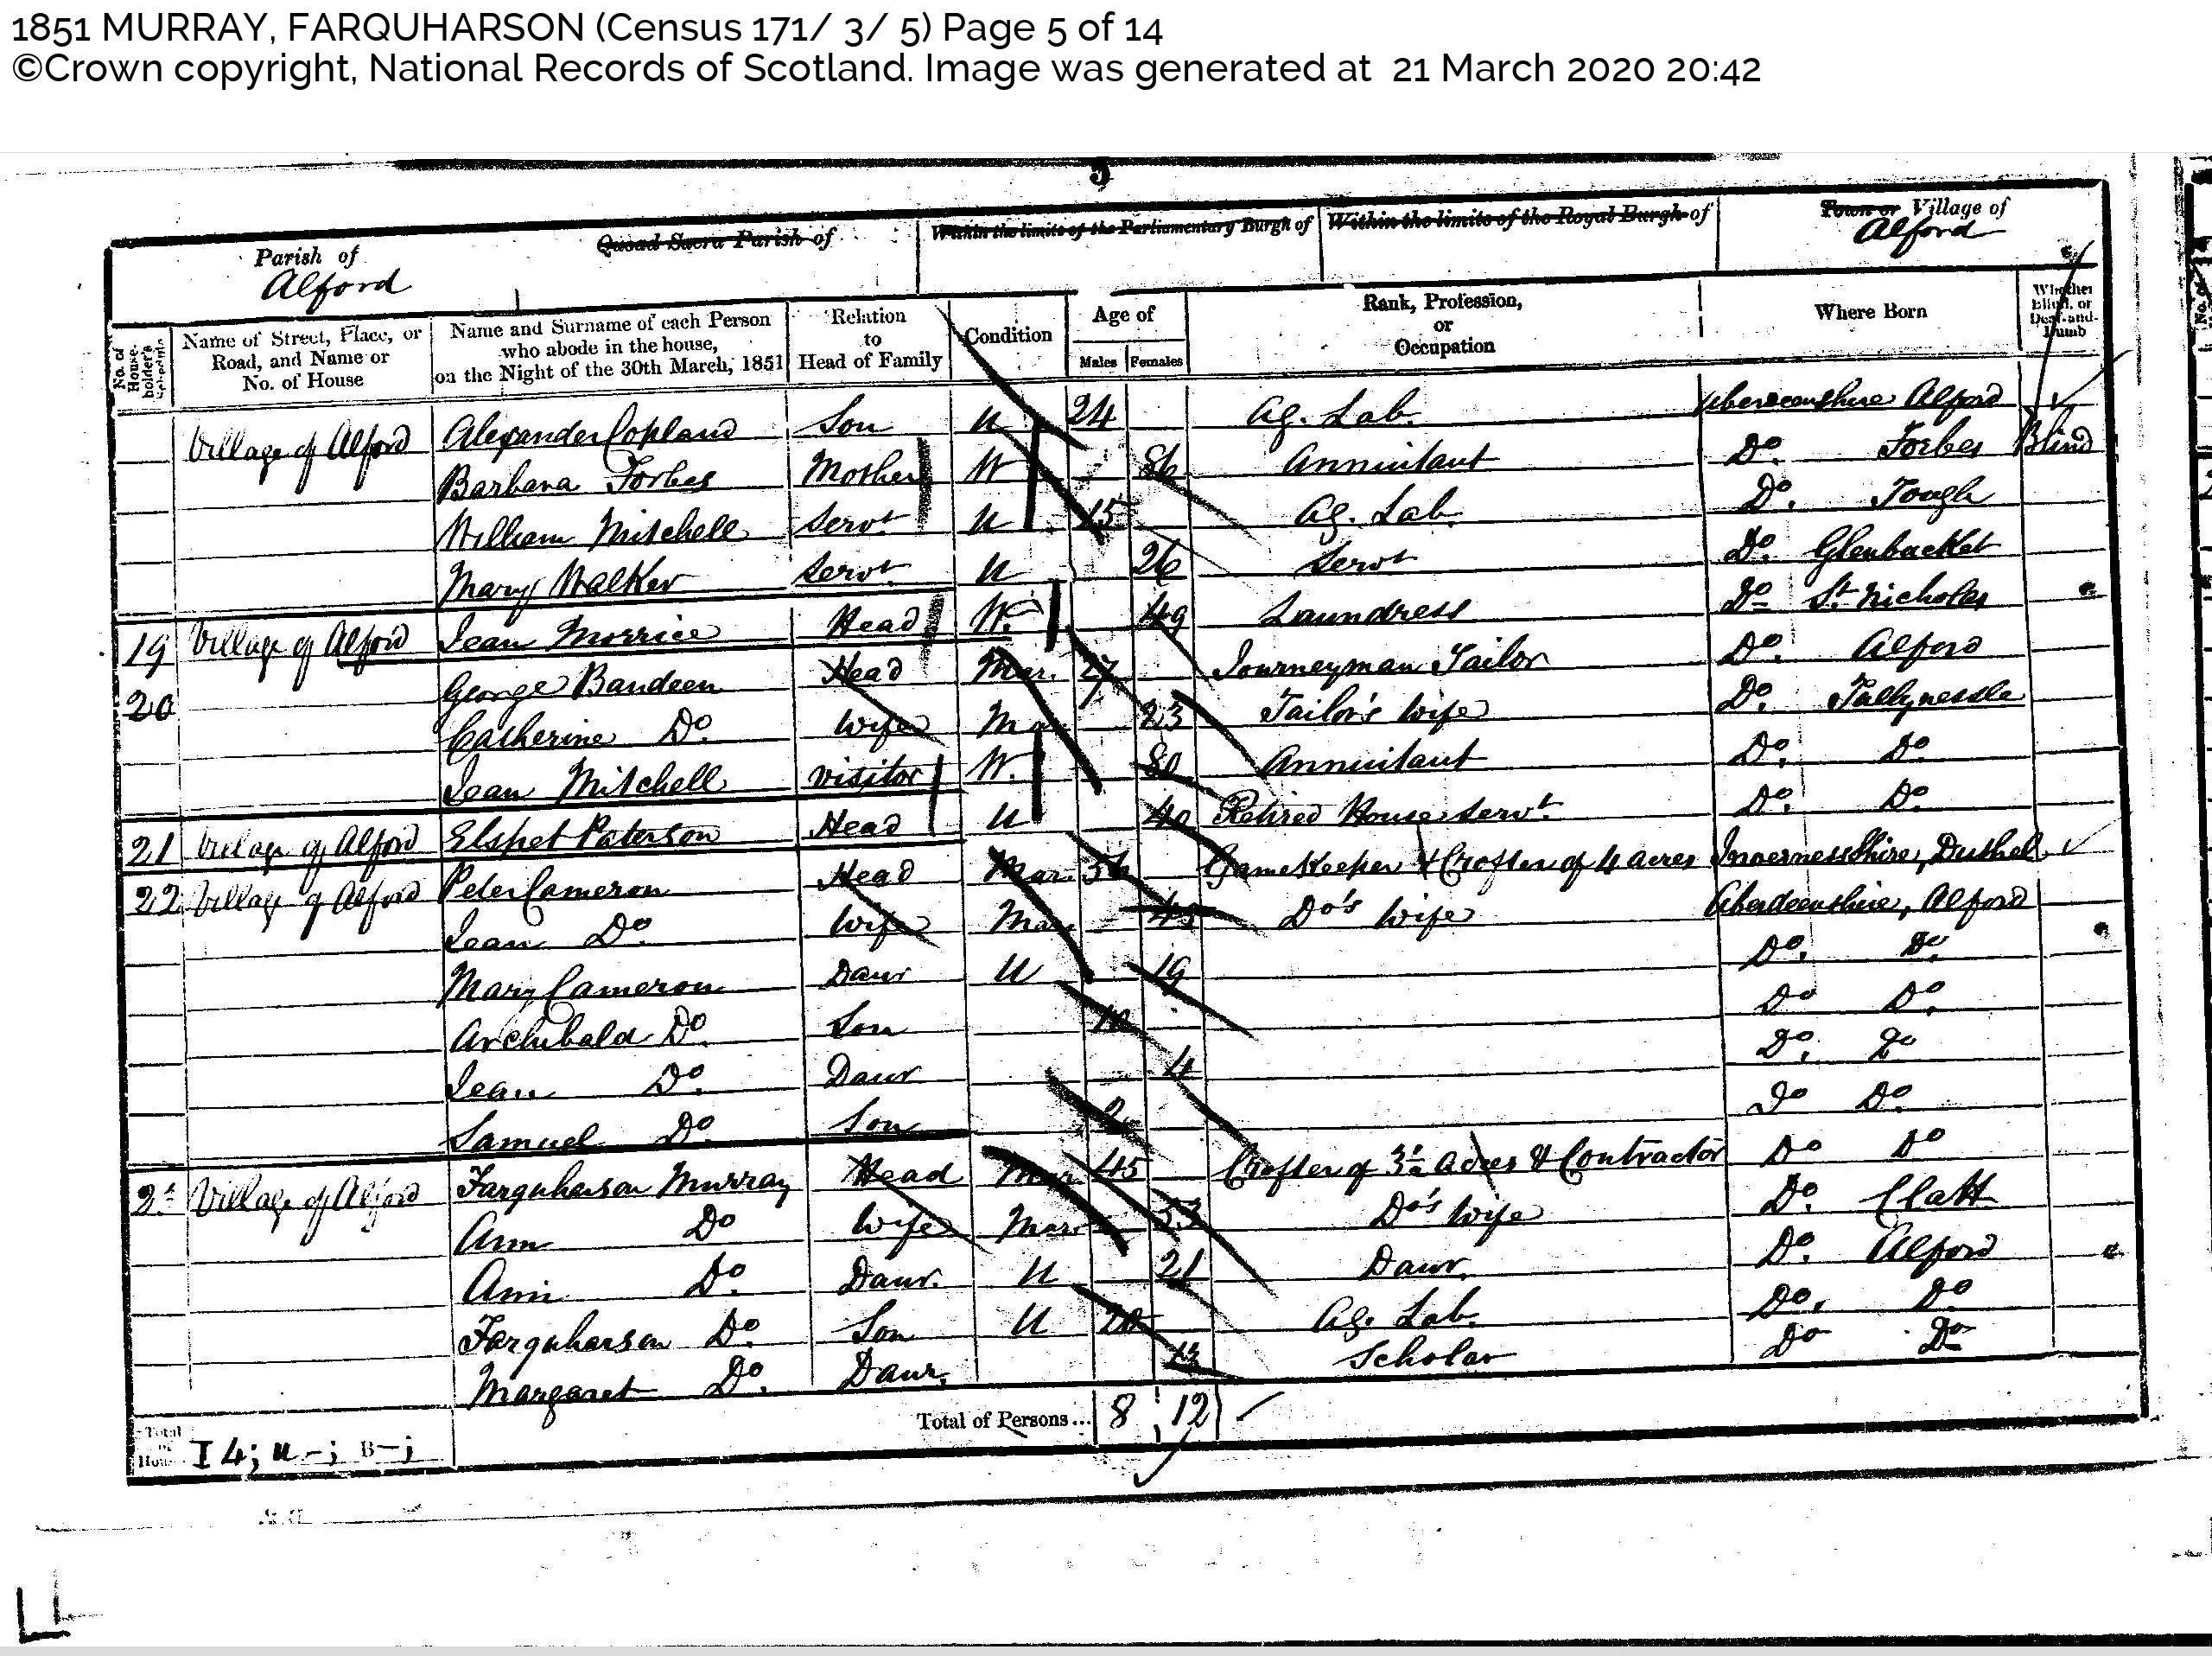 1851 MURRAY, FARQUHARSON (Census 171/ 3/ 5) Page 5 of 14
©Crown copyright, National Records of Scotland. Image was generated at 21 March 2020 20:42
5
Parish of Quoad Sacra Parish of Within the limits of the Parliamentary Burgh of Within the limits of the Royal Burgh of Town or Village of
Alford Alford
No. of House-holder's Schedule Name of Street, Place, or Road, and Name or No. of House Name and Surname of each Person who abode in the house, on the Night of the 30th March, 1851 Relation to Head of Family Condition Age of Males Females Rank, Profession, or Occupation Where Born Whether Blind, or Deaf-and-Dumb
Village of Alford Alexander Copland Son U 24 Ag. Lab. Aberdeenshire Alford
Barbara Forbes Mother W 86 Annuitant Do. Forbes Blind
William Mitchell Servt U 15 Ag. Lab. Do. Tough
Mary Walker Servt U 26 Servt Do. Glenbucket
19 Village of Alford Jean Morrice Head W. 49 Laundress Do St. Nicholas
20 George Bandeen Head Mar. 27 Journeyman Tailor Do. Alford
Catherine Do. Wife Mar 23 Tailor's Wife Do. Tullynessle
Jean Mitchell Visitor W. 80 Annuitant Do. Do.
21 Village of Alford Elspet Paterson Head U 40 Retired House Servt. Do. Do.
22 Village of Alford Peter Cameron Head Mar. 56 GameKeeper & Crofter of 4 acres InvernessShire, Duthel
Jean Do. Wife Mar 45 Do's Wife Aberdeenshire, Alford
Mary Cameron Daur U 19 Do. Do.
Archibald Do. Son 10 Do Do.
Jean Do. Daur 4 Do. Do
Samuel Do. Son Do Do.
Village of Alford Farquharson Murray Head Mar 45 Crofter of 3½ Acres & Contractor Do Do
Ann Do Wife Mar 53 Do's Wife Do. Clatt
Ann Do. Daur. U 21 Daur. Do. Alford
Farquharson Do. Son U 20 Ag. Lab. Do. Do
Margaret Do. Daur. 13 Scholar Do Do
Total of Persons... 8 12
Total of Houses I 4; U -; B -;